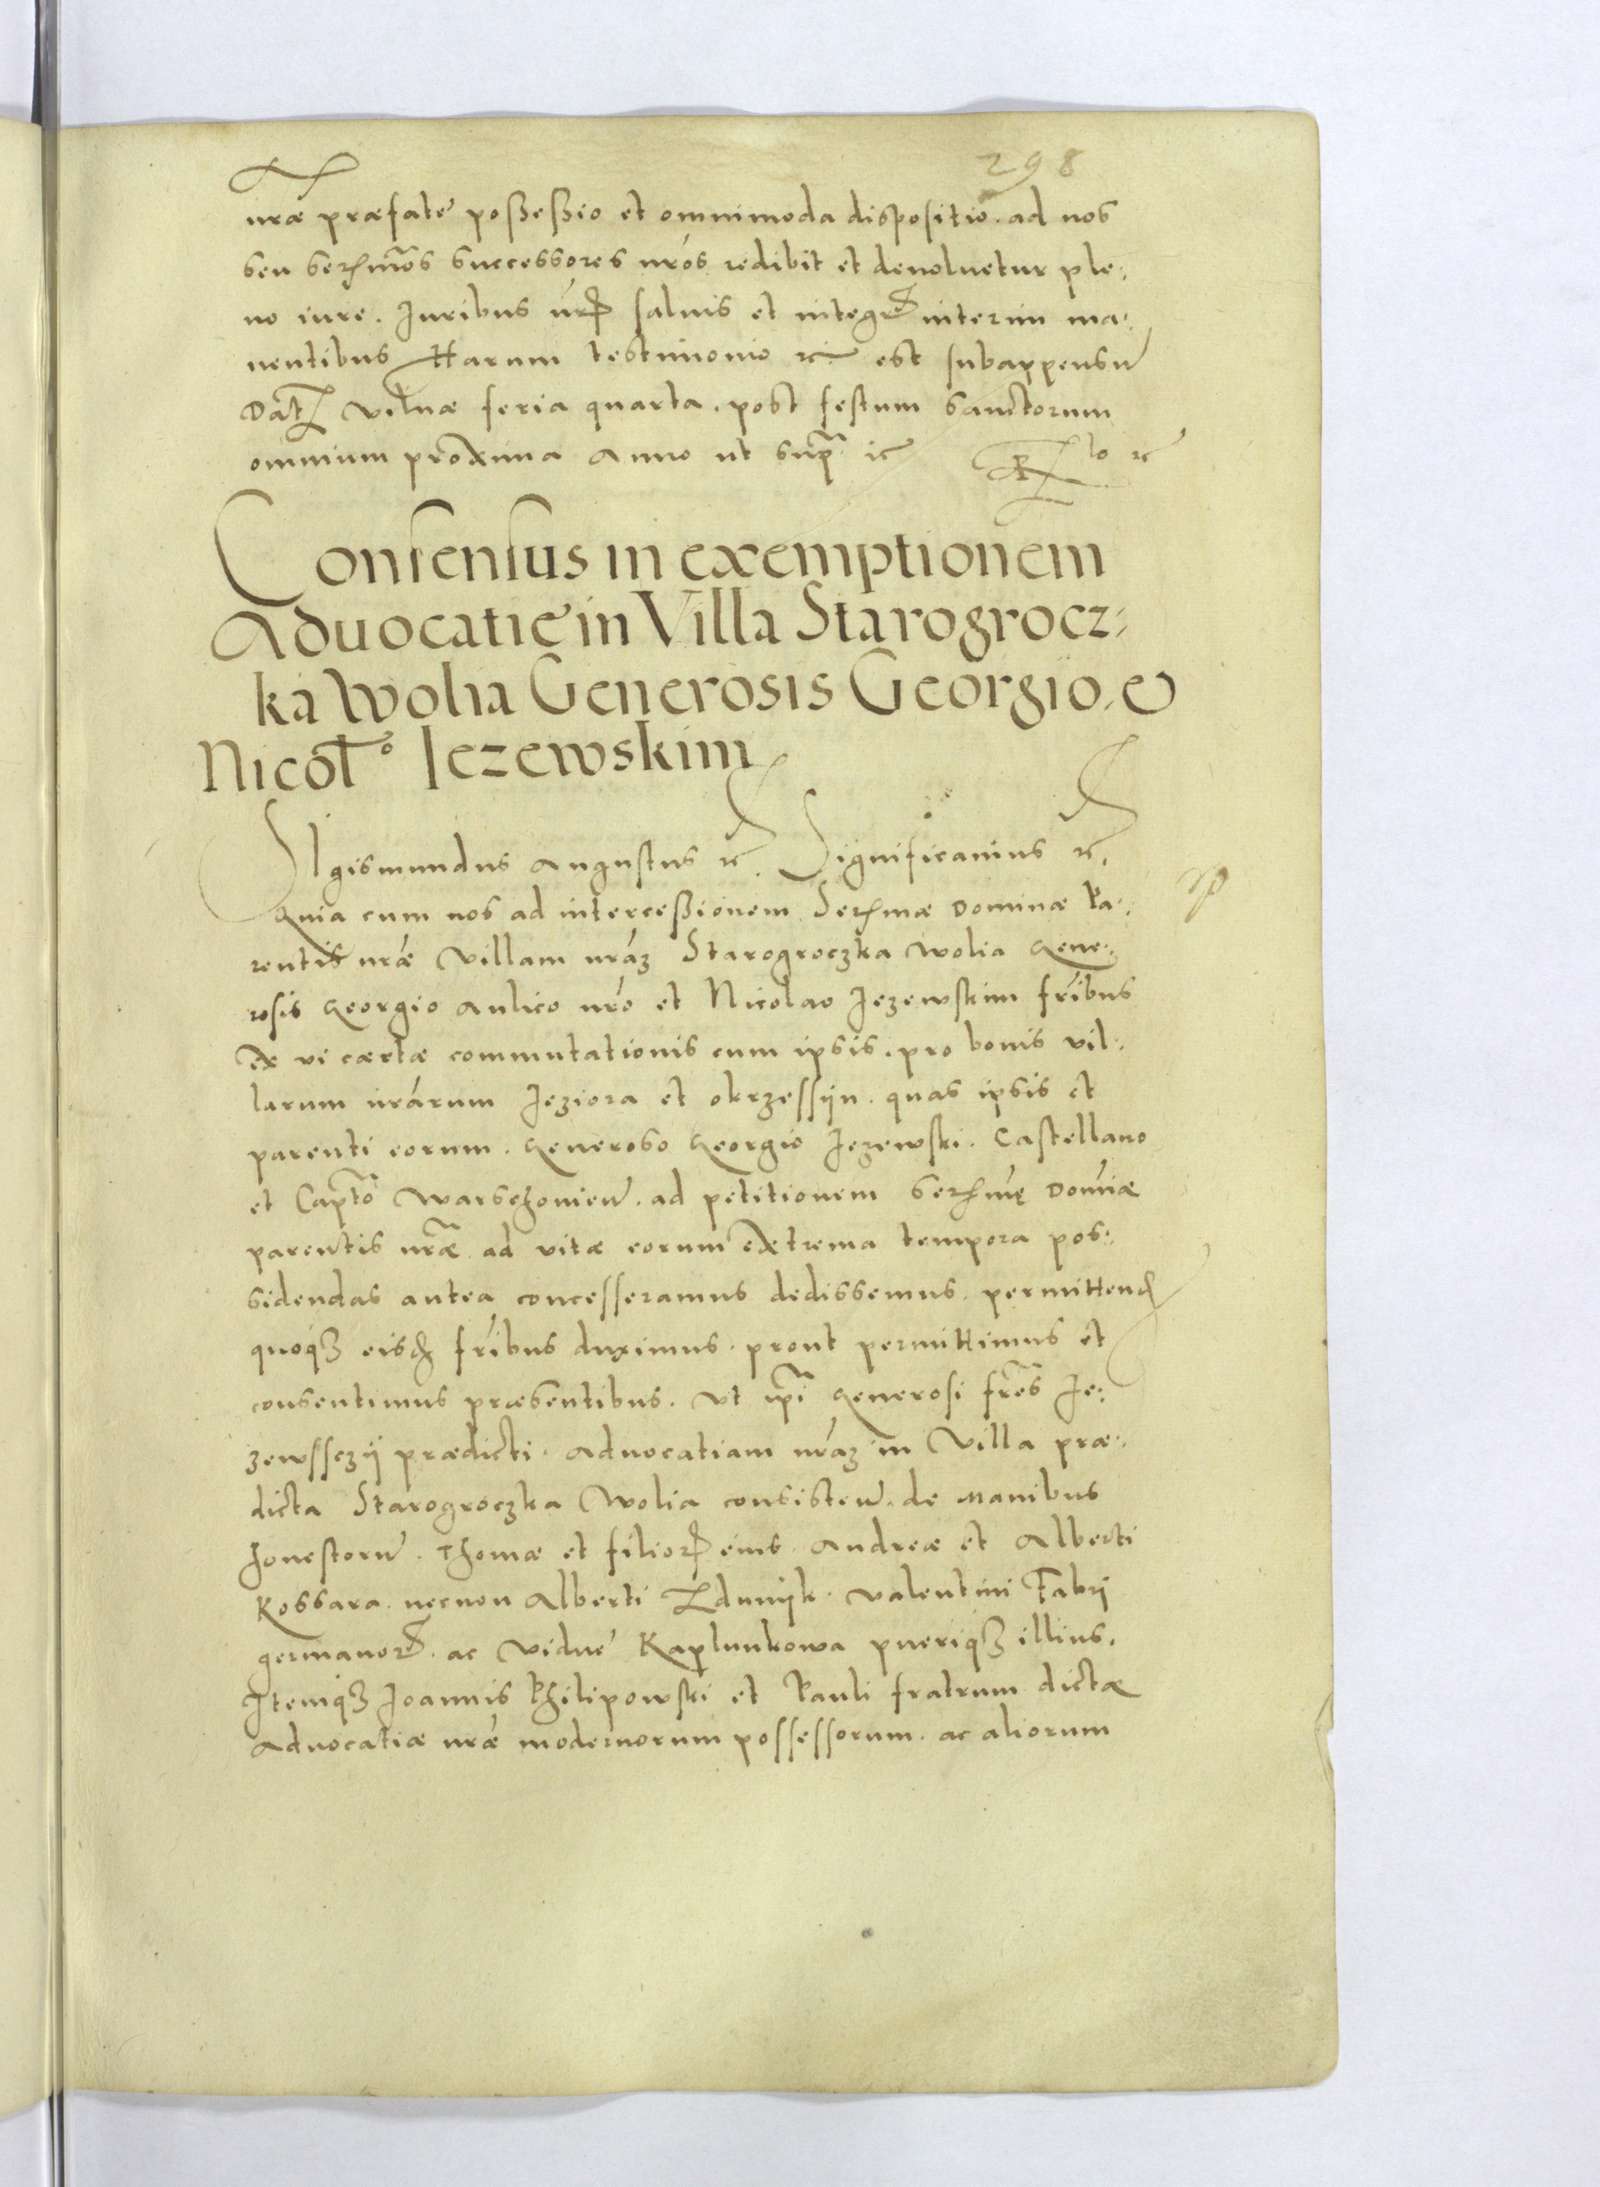 298
nræ præfate possessio et omnimoda dispositio. ad nos
seu serenmos successores nros redibit et devoluetur ple:
no iure. Iuribus nris salvis et integris interim ma:
nentibus Harum testimonio rei etc est subappensum
Dat Vilnæ feria quarta. post festum Sanctorum
omnium proxima Anno ut supra etc Rlo etc
Consensus in exemptionem
Aduocatie in Villa Starogrocz:
ka Wolia Generosis Georgio. et
Nicol.o Iezewskim
SIgismundus Augustus etc. Significamus etc.
Quia cum nos ad intercessionem Serenmæ Dominæ Pa:
rentis nræ Villam nram Starogroczka Wolia Gene:
rosis Georgio Aulico nro et Nicolao Jezewskim fribus
ex vi certæ commutationis cum ipsis. pro bonis vil:
larum nrarum Jeziora et Okrzessyn. quas ipsis et
parenti eorum. Generoso Georgio Jezewski. Castellano
et Capto Warschovien. ad petitionem Serenmę Domnæ
parentis nræ ad vitæ eorum extrema tempora pos:
sidendas antea concesseramus dedissemus. permittend
quoq3 eisd fribus duximus. prout permittimus et
consentimus præsentibus. Vt ipi Generosi fres Je:
zewssczy prædicti. Aduocatiam nram in Villa præ:
dicta Starogroczka Wolia consisten. de manibus
honestorum. Thomæ et filior eius. Andreæ et Alberti
Kossara. necnon Alberti Zdunyk. Valentini Fabri
germanor. ac Vidue Kaplunkowa pueriq3 illius.
Itemq3 Joannis Philipowski et Pauli fratrum dictæ
Aduocatiæ nræ modernorum possessorum. ac aliorum